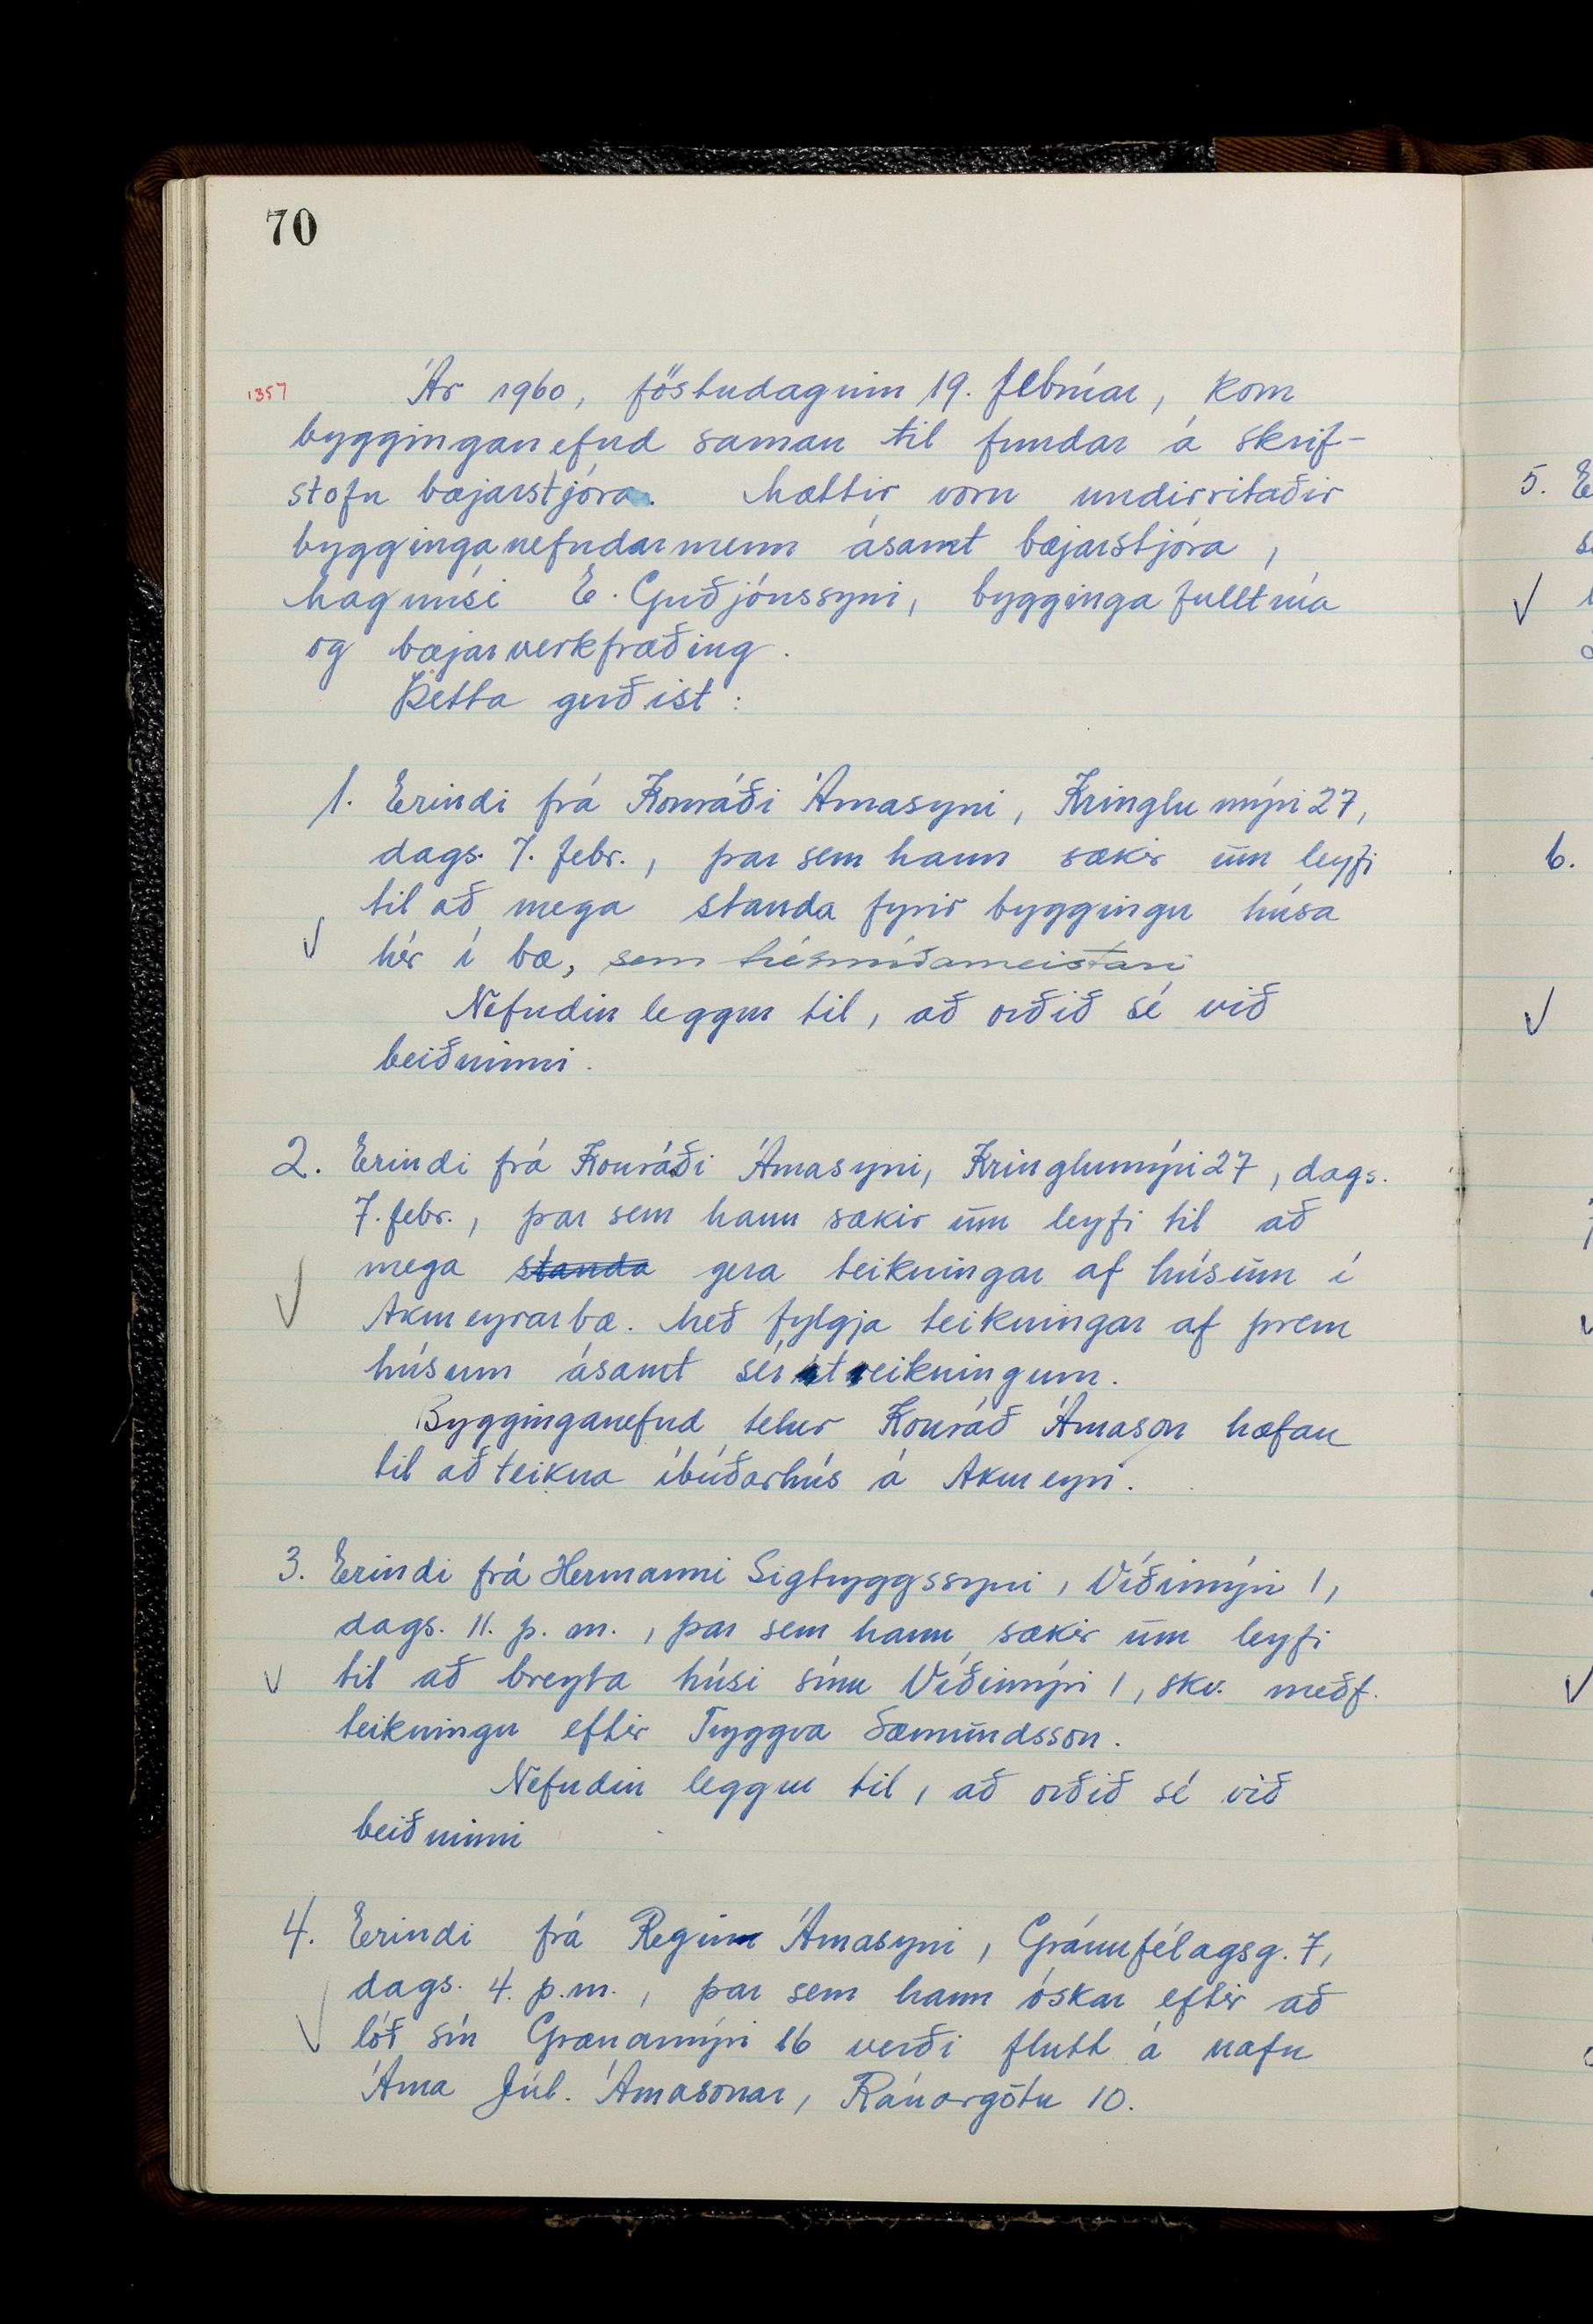 70
1357
Ár 1960, föstudaginn 19. febrúar, kom
bygginganefnd saman til fundar á skrif-
stofu bæjarstjóra. Mættir voru undirritaðir
bygginganefndarmenn ásamt bæjarstjóra,
Magnúsi E. Guðjónssyni, byggingafulltrúa
og bæjarverkfræðing.
Þetta gerðist:
1. Erindi frá Konráði Árnasyni, Kringlumýri 27,
dags. 7. febr., þar sem hann sækir um leyfi
til að mega standa fyrir byggingu húsa
hér í bæ, sem húsasmíðameistari
Nefndin leggur til, að orðið sé við
beiðninni.
2. Erindi frá Konráði Árnasyni, Kringlumýri 27, dags.
7. febr., þar sem hann sækir um leyfi til að
mega standa gera teikningar af húsum í
Akureyrarbæ. Með fylgja teikningar af þrem
húsum ásamt sérteikningum.
Bygginganefnd telur Konráð Árnason hæfan
til að teikna íbúðarhús á Akureyri.
3. Erindi frá Hermanni Sigtryggssyni, Víðimýri 1,
dags. 11. þ. m., þar sem hann sækir um leyfi
til að breyta húsi sínu Víðimýri 1, skv. meðf.
teikningu eftir Tryggva Sæmundsson.
Nefndin leggur til, að orðið sé við
beiðninni
4. Erindi frá Reginn Árnasyni, Gránufélagsg. 7,
dags. 4. þ.m., þar sem hann óskar eftir að
lóð sín Grænamýri 16 verði flutt á nafn
Árna Júl. Árnasonar, Ránargötu 10.
5. E
6.